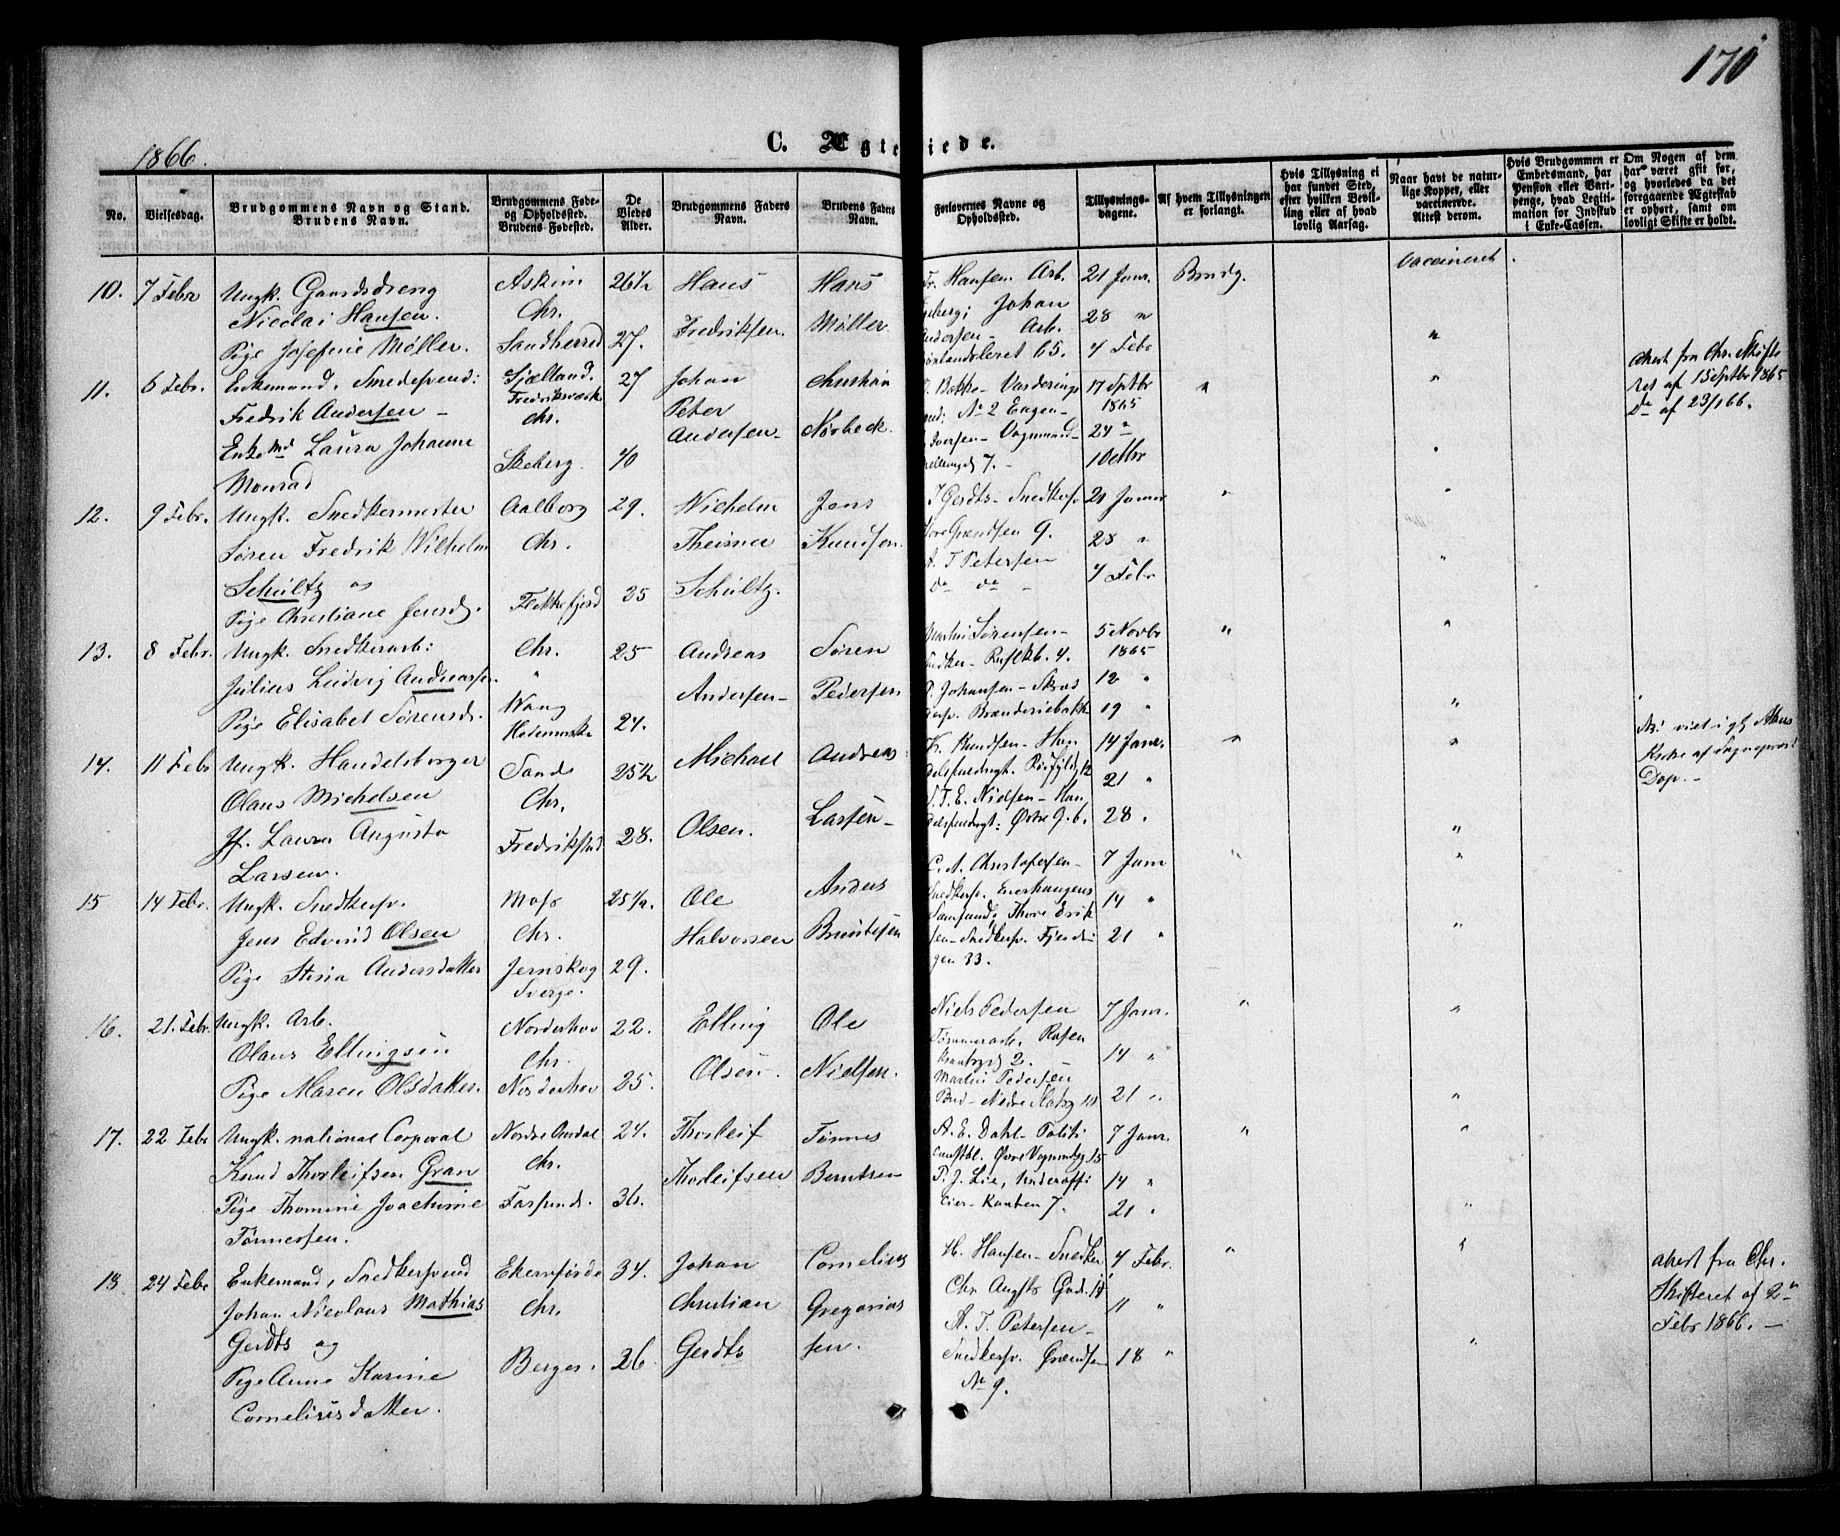 170
1866.
C. Ægteviede.
No.
Vielsesdag.
Brudgommens Navn og Stand.
Brudens Navn.
Brudgommens Føde-
og Opholdssted.
Brudens Fødested.
De
Viedes
Alder.
Brudgommens Faders
Navn.
Brudens Faders
Navn.
Forlovernes Navne og
Opholdssted.
Tillysnings-
dagene.
Af hvem Tillysningen
er forlangt.
Hvis Tillysning ei
har fundet Sted,
efter hvilken Bevil-
ling eller af hvad
lovlig Aarsag.
Naar havt de natur-
lige Kopper, eller
vaccinerede.
Attest derom.
Hvis Brudgommen er
Embedsmand, har
Pension eller Vart-
penge, hvad Legiti-
mation for Indskud
i Enke-Cassen.
Om Nogen af dem
har været gift før,
og hvorledes da det
foregaaende Ægteskab
er ophørt, samt om
lovligt Skifte er holdt.
10. 7 Febr
Ungk. Gaardsdreng
Nicolai Hansen.
Pige Josefine Møller.
Askim
Chr.
Sandherred
26½
27.
Hans
Fredriksen.
Hans
Møller
Fr. Hansen Arb.
Johan
Andersen - Arb.
Grønlandsleret 65.
21 Janr.
28 "
4 Febr
Brudg.
vaccineret.
"
11. 6 Febr.
Enkemand, Smedesvend:
Fredrik Andersen -
Enkemd Laura Johanne
Monrad
Sjælland.
Fredriksværk
Chr.
Skeberg.
27
40
Johan
Peter
Andersen -
Christian
Nørbeck.
No 2 Engen -
Iversen - Vognmand -
7. -
17 Sptbr
1865
24 "
1 Octbr
"
"
"
Attest fra Chr. Skifte
ret af 15 Septbr 1865
Do af 23/1 66.
12. 9 Febr.
Ungk. Snedkermester
Søren Fredrik Wilhelm
Schultz og
Pige Christiane Jensd.
Aalborg
Chr.
Flekkefjord
29.
25
Schultz.
Jens
Knudsen.
J Gerdts - Snedkersv
Grændsen 9.
A. T Petersen
do do -
21 Janr
28 "
4 Febr
"
"
"
13. 8 Febr.
Ungk. Snedkerarb:
Julius Ludvig Andreasen.
Pige Elisabet Sørensd.
Chr.
"
Wang
Hedemarke
25
24.
Andreas
Andersen -
Søren
Pedersen
Martin Sørensen -
P. Johansen - Skræd
Brænderiebakk
5 Novbr
1865
12 "
19 "
"
"
"
14. 11 Febr
Ungk. Handelsborger
Olaus Michelsen
Jf. Laura Augusta
Larsen.
Sande
Chr.
Fredrikstad
25½
28.
Michael
Olsen.
Andreas
Larsen -
Kr. Knudsen - Han
S. T. E. Nielsen - Han
delsfuldmgt: Østre G. 6.
14 Janr.
21 "
28 .
"
"
"
NB: viet i gl. Akers
Kirke af Sogneprest
Dop. -
15 14 Febr.
Ungk. Snedkersv.
Jens Edvard Olsen
Pige Stina Andersdatter
Moss
Chr.
Jernskog
Sverge.
25½.
29.
Ole
Halvorsen
Anders
C. A. Christofersen -
Snedkersv. Enerhaugens
Samfund, Thore Erik
sen - Snedkersv. Fjerdin
gen 33.
7 Janr
14 "
21 "
"
"
"
16. 21. Febr.
Ungk. Arb.
Olaus Ellingsen
Pige Maren Olsdatter.
Norderhov
Chr.
Norderhov
22.
25.
Elling
Olsen.
Ole
Nielsen.
Niels Pedersen
Tømmerarb.
2. -
Martin Pedersen
7 Janr.
14 "
21 "
"
"
"
17. 22 Febr
Ungk. national Corporal
Knud Thorleifsen Gran
Pige Thomine Joachimie
Tønnesen.
Nordre Aurdal
Chr.
Farsund.
24.
36.
Thorleif
Thorleifsen
Tønnes
Berntsen
A. E. Dahl - Politi
constbl. Øvre Vognmdsg 15
P. J. Lie, Underoffi
cier - Kanten 7.
7 Janr.
14 "
21 "
"
"
"
18. 24 Febr
Enkemand, Snedkersvend
Johan Nicolaus Mathias
Gerdts og
Pige Anne Karine
Cornelius datter.
Ekernførde
Chr.
Bergen.
34.
26.
Johan
Christian
Gerdts
Cornelius
Gregorius
sen.
H. Hansen - Snedker
Chr Augsts Gad. 14
A. T. Petersen -
Snedkersv. Grændsen
No 9.
4 Febr.
11 "
18 "
"
"
"
Attest fra Chr.
Skifteret af 2n
Febr 1866. -